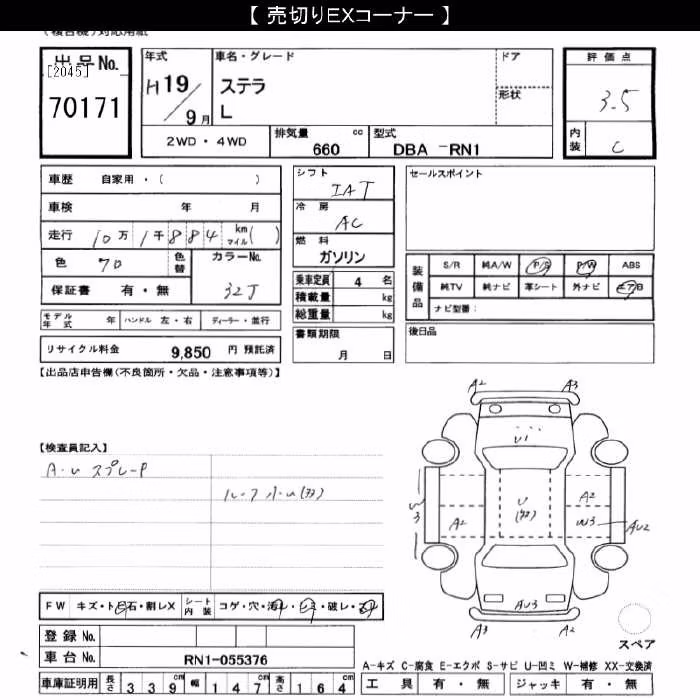 【 売切りEXコーナー 】
出品No.
[2045]
70171
年式
H19/9月
車名・グレード
ステラ
L
ドア
形状
評価点
3.5
内装
C
2WD・4WD
排気量 cc
660
型式
DBA -RN1
車歴 自家用・( )
車検 年 月
走行 10万 1千884 km マイル( )
色
色替
カラーNo.
32J
保証書 有・無
シフト
IAT
冷房
AC
燃料
ガソリン
乗車定員 4 名
積載量 kg
総重量 kg
セールスポイント
装備品
S/R 純A/W P/S P/W ABS
純TV 純ナビ 革シート 外ナビ エアB
ナビ型番:
モデル年式 年 ハンドル 左・右 ディーラー・並行
リサイクル料金 9,850 円 預託済
書類期限
月 日
後日品
【出品店申告欄(不良箇所・欠品・注意事項等)】
【検査員記入】
A・U スプレーP
ルーフ小U(ヌ)
A2 A3
U1
W3
A2
U
A2
W3
AU2
AU3
A3 A2
スペア
FW キズ・トビ石・割レX シート内装 コゲ・穴・汚レ・シミ・破レ・
登録No.
車台No. RN1-055376
車庫証明用 長さ 339cm 幅 147cm 高さ 164cm
A-キズ C-腐食 E-エクボ S-サビ U-凹ミ W-補修 XX-交換済
工具 有・無 ジャッキ 有・無